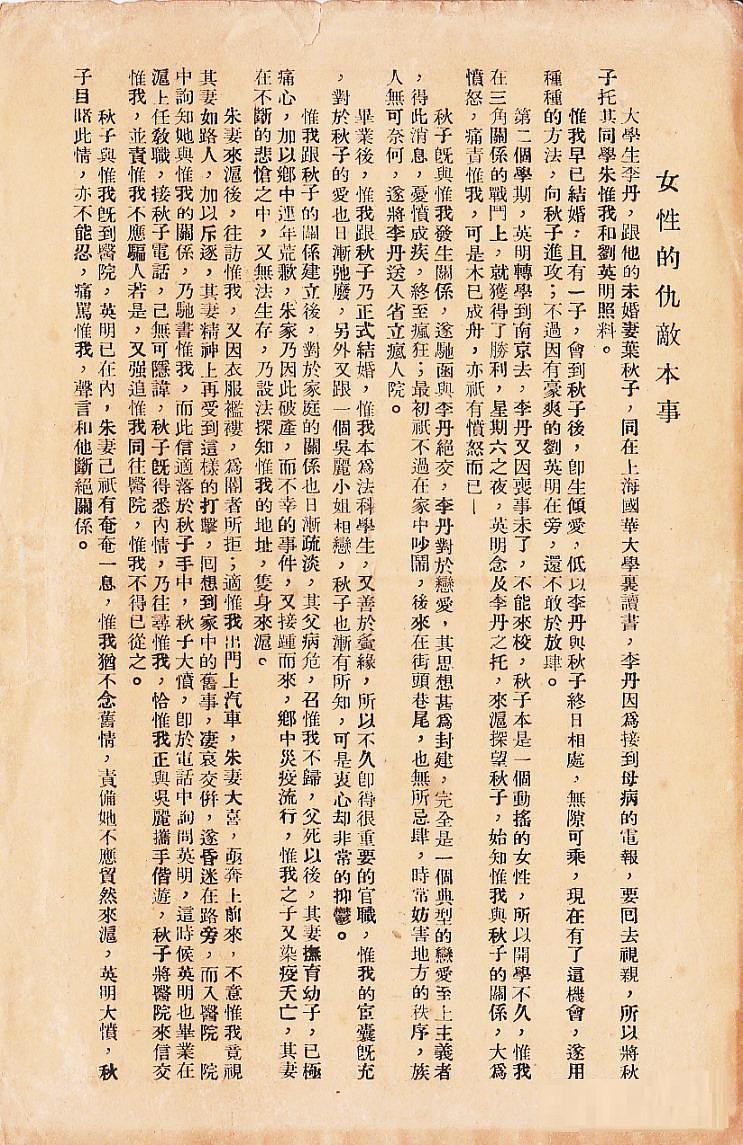 女性的仇敵本事
大學生李丹，跟他的未婚妻葉秋子，同在上海國華大學裏讀書，李丹因爲接到母病的電報，要回去視親，所以將秋
子托其同學朱惟我和劉英明照料。
惟我早已結婚，且有一子，會到秋子後，卽生傾愛，低以李丹與秋子終日相處，無隙可乘，現在有了這機會，遂用
種種的方法，向秋子進攻；不過因有豪爽的劉英明在旁，還不敢於放肆。
第二個學期，英明轉學到南京去，李丹又因喪事未了，不能來校，秋子本是一個動搖的女性，所以開學不久，惟我
在三角關係的戰鬥上，就獲得了勝利，星期六之夜，英明念及李丹之托，來滬探望秋子，始知惟我與秋子的關係，大爲
憤怒，痛責惟我，可是木已成舟，亦祇有憤怒而已—
秋子旣與惟我發生關係，遂馳函與李丹絕交，李丹對於戀愛，其思想甚爲封建，完全是一個典型的戀愛至上主義者
，得此消息，憂憤成疾，終至瘋狂；最初祇不過在家中吵鬧，後來在街頭巷尾，也無所忌肆，時常妨害地方的秩序，族
人無可奈何，遂將李丹送入省立瘋人院。
畢業後，惟我跟秋子乃正式結婚，惟我本爲法科學生，又善於夤緣，所以不久卽得很重要的官職，惟我的宦囊旣充
，對於秋子的愛也日漸弛廢，另外又跟一個吳麗小姐相戀，秋子也漸有所知，可是衷心却非常的抑鬱。
惟我跟秋子的關係建立後，對於家庭的關係也日漸疏淡，其父病危，召惟我不歸，父死以後，其妻撫育幼子，已極
痛心，加以鄉中連年荒歉，朱家乃因此破產，而不幸的事件，又接踵而來，鄉中災疫流行，惟我之子又染疫夭亡，其妻
在不斷的悲愴之中，又無法生存，乃設法探知惟我的地址，隻身來滬。
朱妻來滬後，往訪惟我，又因衣服襤褸，爲閽者所拒；適惟我出門上汽車，朱妻大喜，亟奔上前來，不意惟我竟視
其妻如路人，加以斥逐，其妻精神上再受到這樣的打擊，回想到家中的舊事，凄哀交併，遂昏迷在路旁，而入醫院 院
中詢知她與惟我的關係，乃馳書惟我，而此信適落於秋子手中，秋子大憤，卽於電話中詢問英明，這時候英明也畢業在
滬上任敎職，接秋子電話，己無可隱諱，秋子旣得悉內情，乃往尋惟我，恰惟我正與吳麗攜手偕遊，秋子將醫院來信交
惟我，並責惟我不應騙人若是，又强迫惟我同往醫院，惟我不得已從之。
秋子與惟我旣到醫院，英明已在內，朱妻己祇有奄奄一息，惟我猶不念舊情，責備她不應貿然來滬，英明大憤，秋
子目睹此情，亦不能忍，痛駡惟我，聲言和他斷絕關係。